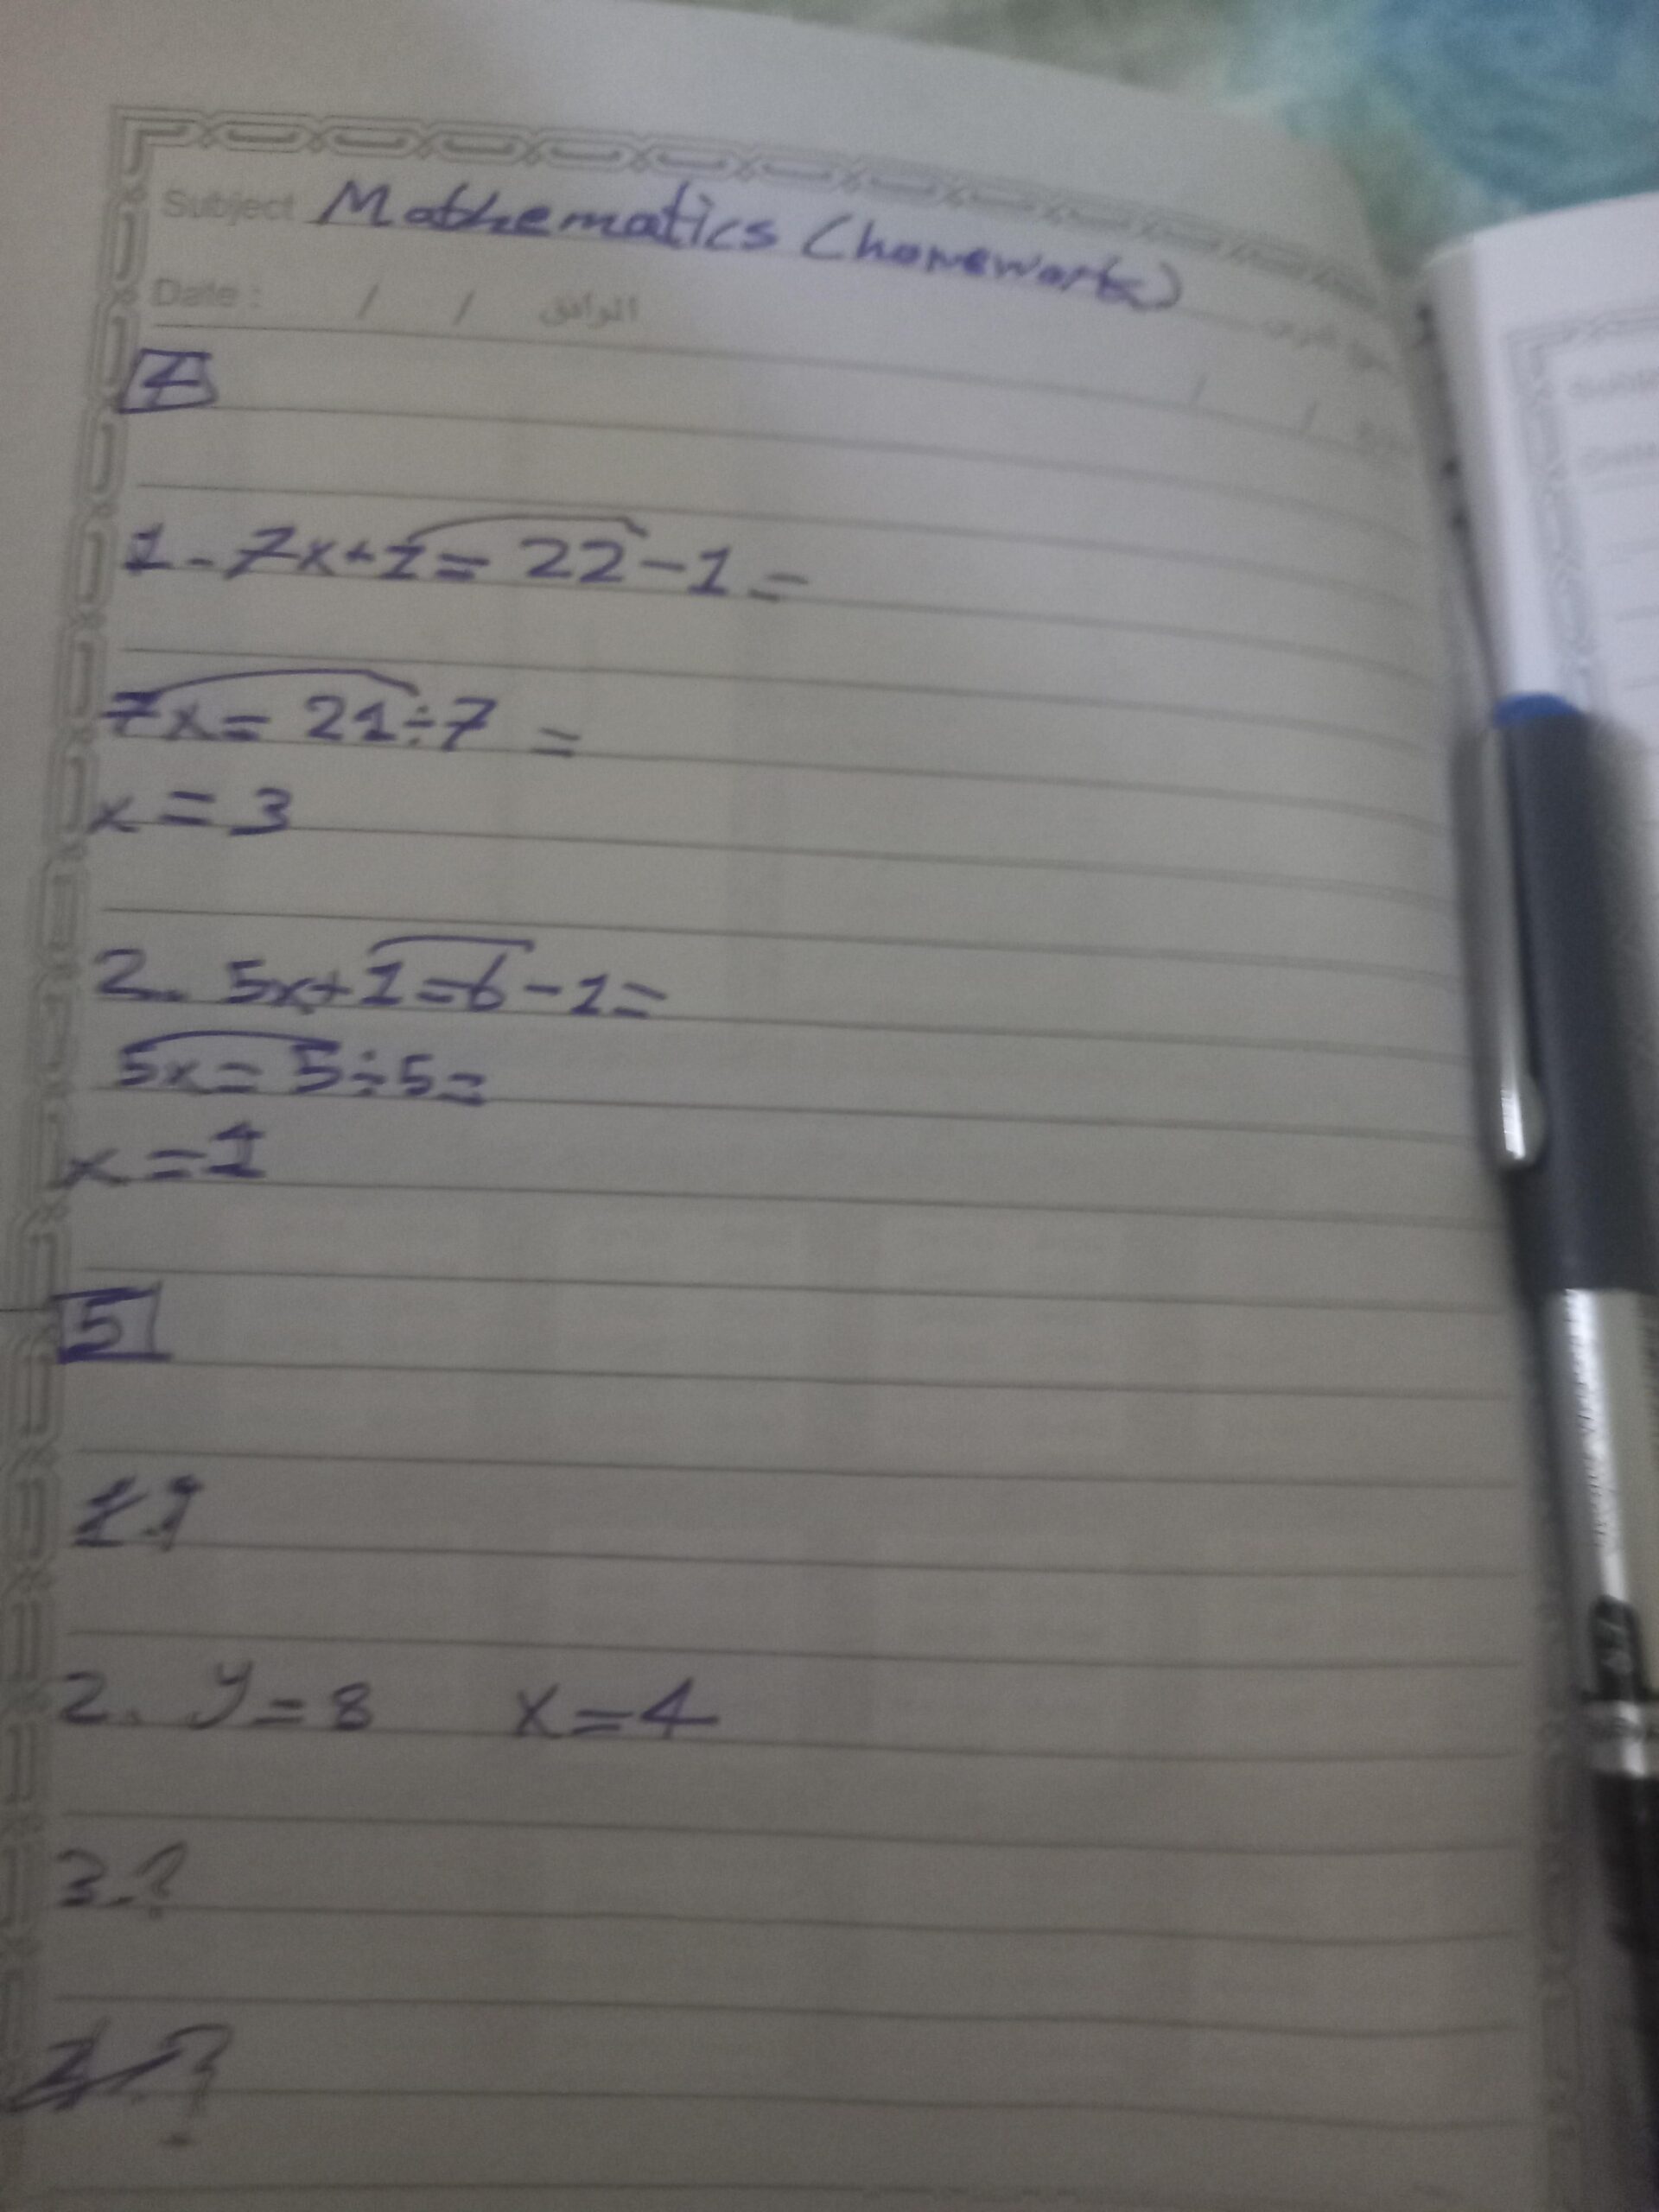 Subject Mathematics (homework)
Date : / / الموافق / /
4
1- 7x+1= 22-1=
7x= 21÷7 =
x = 3
2- 5x+1=6-1=
5x= 5÷5=
x =1
5
1.?
2. y=8 x=4
3.?